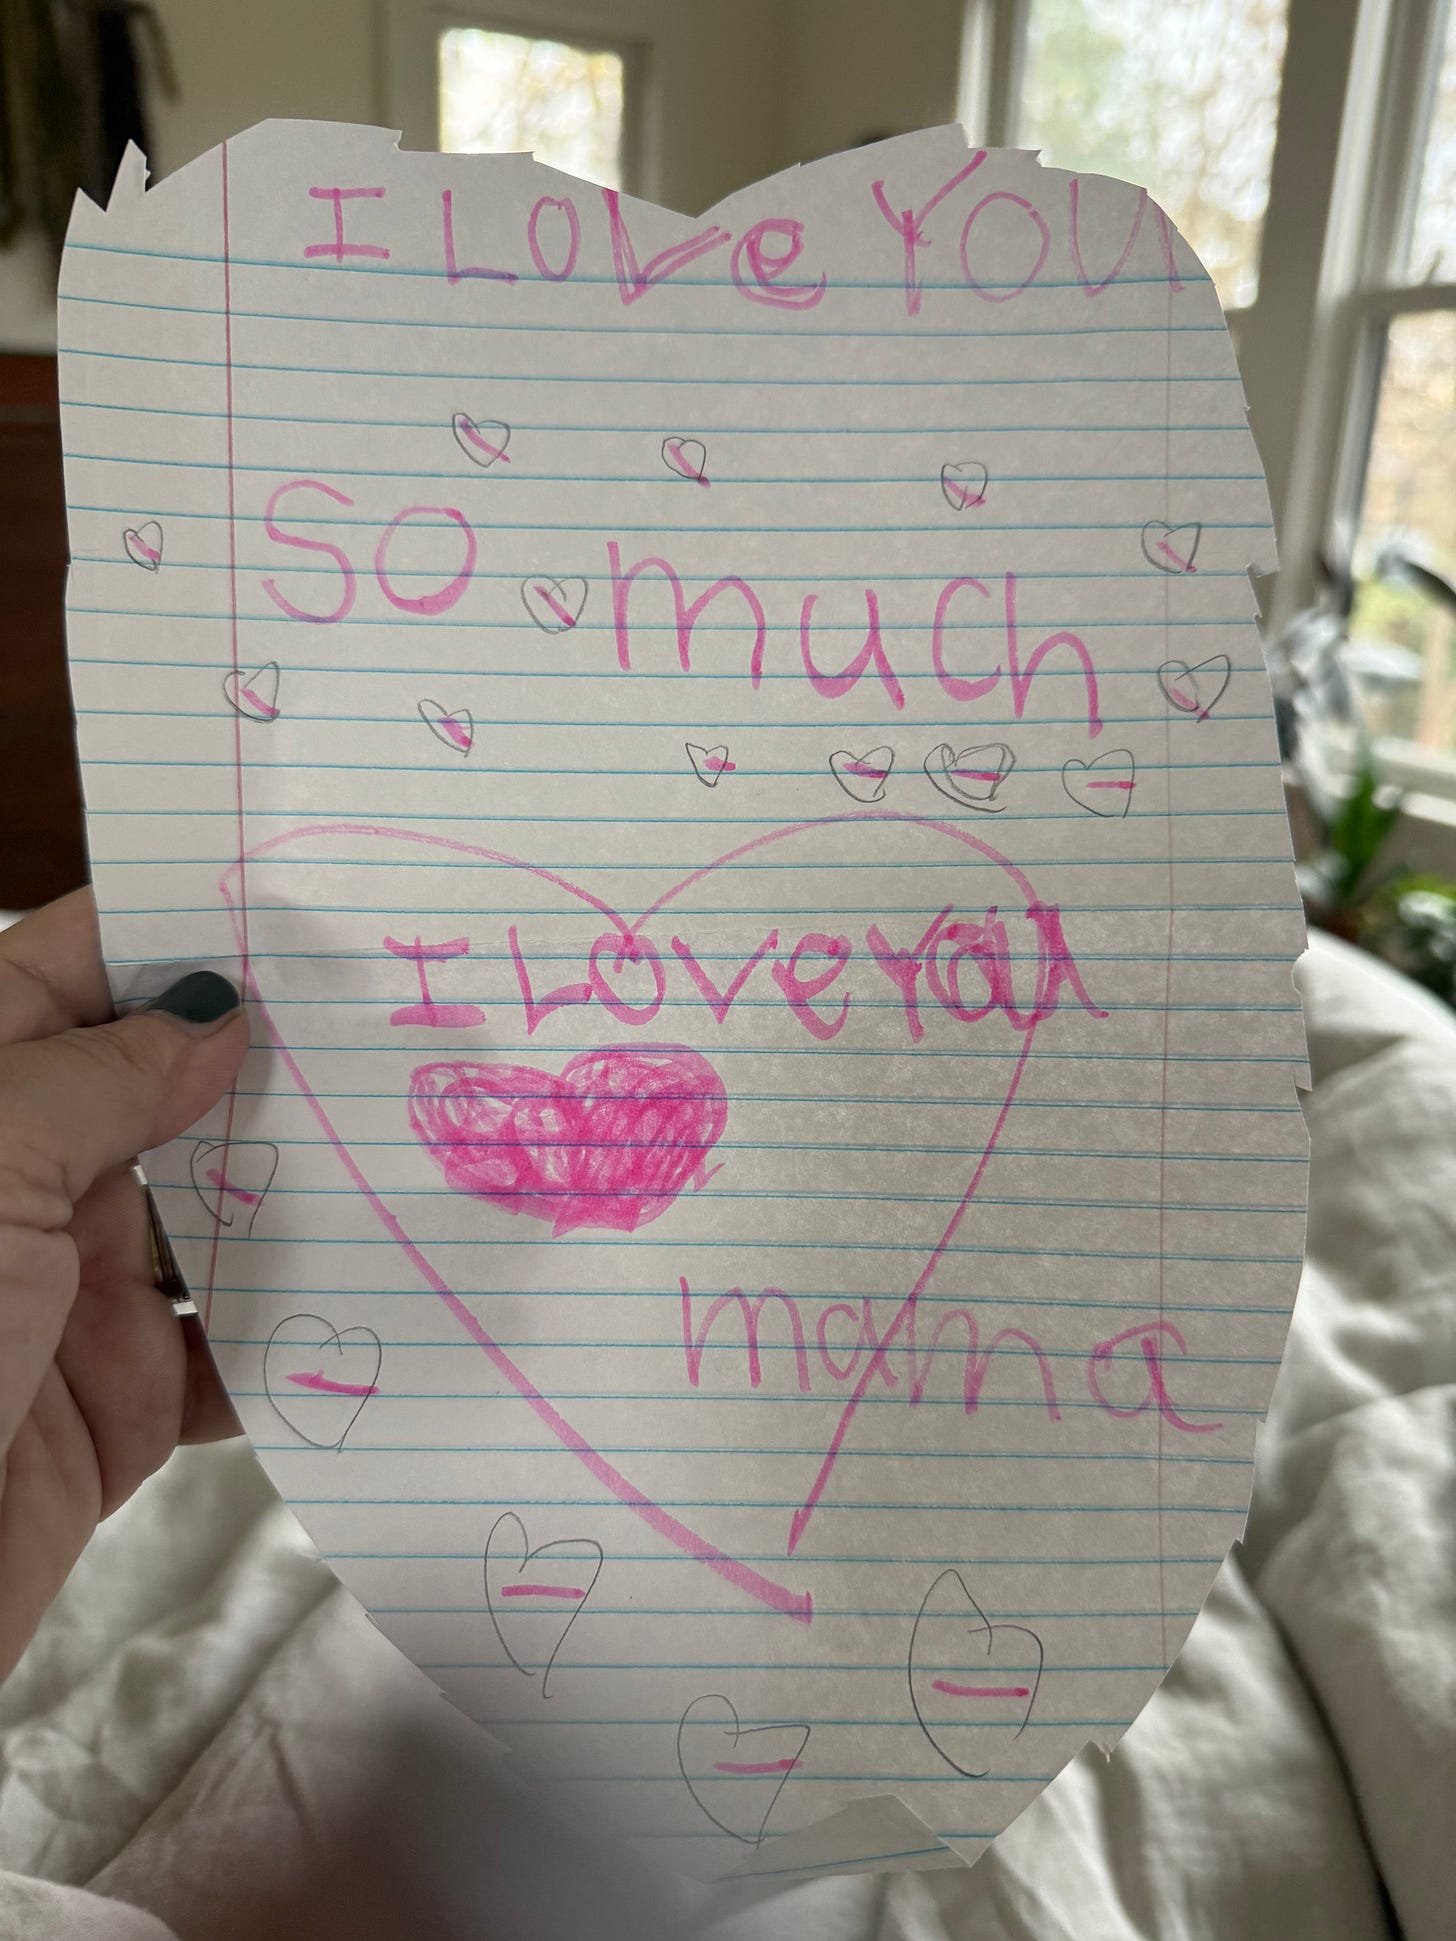 I LOVe YOU
SO much
I LOVe YOU
mama